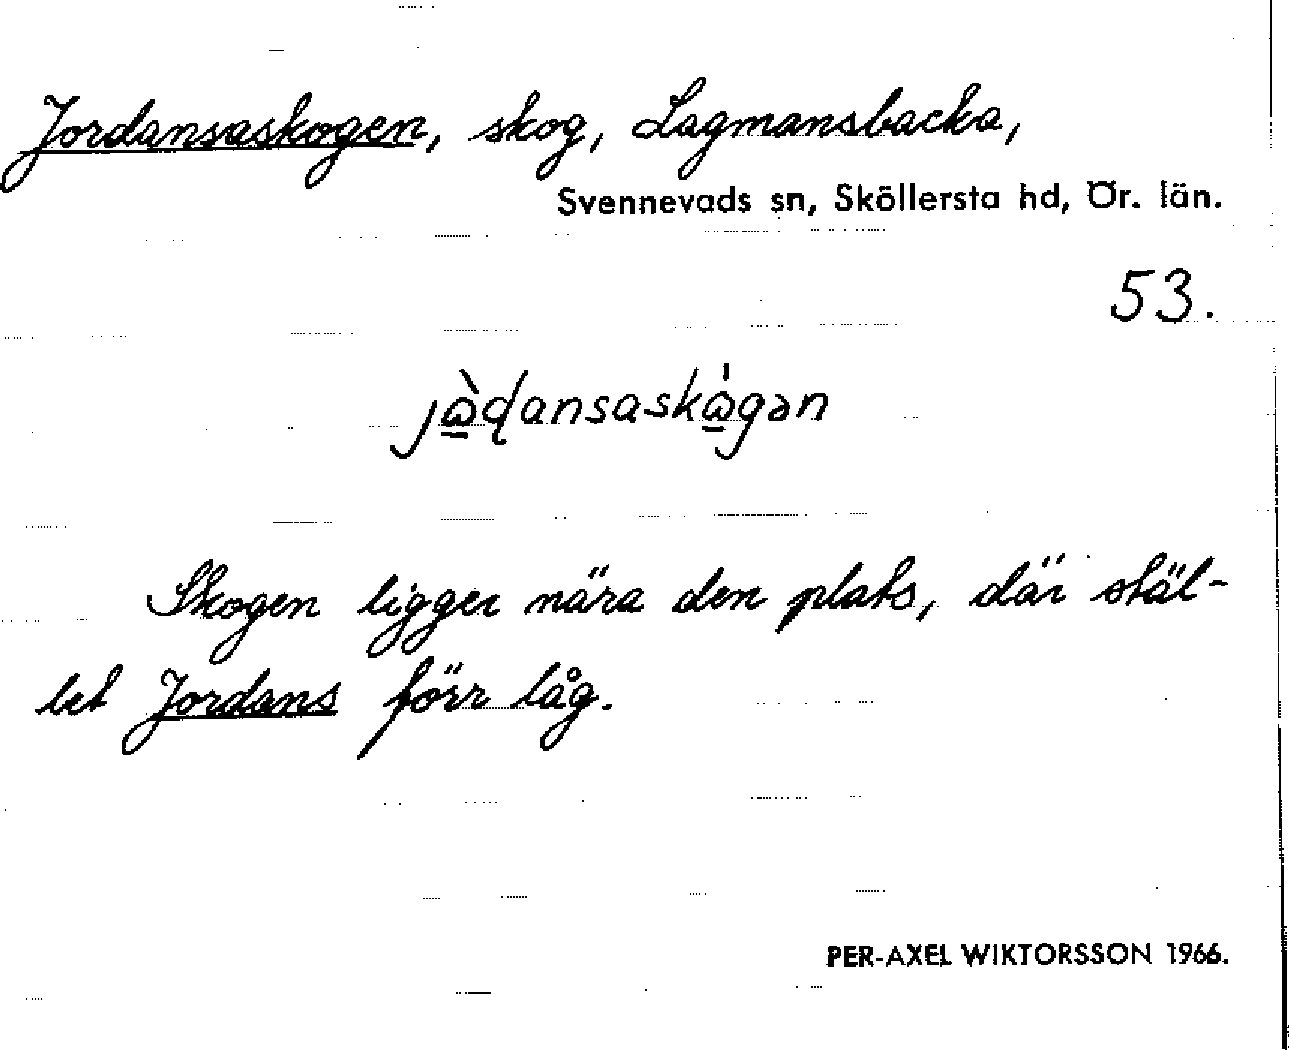 Jordansaskogen, skog, Lagmansbacka,
Svennevads sn, Sköllersta hd, Ör. län.
53.
jὰ̱ɖansaskά̱gən
Skogen ligger nära den plats, där stäl-
let Jordans förr låg.
PER-AXEL WIKTORSSON 1966.